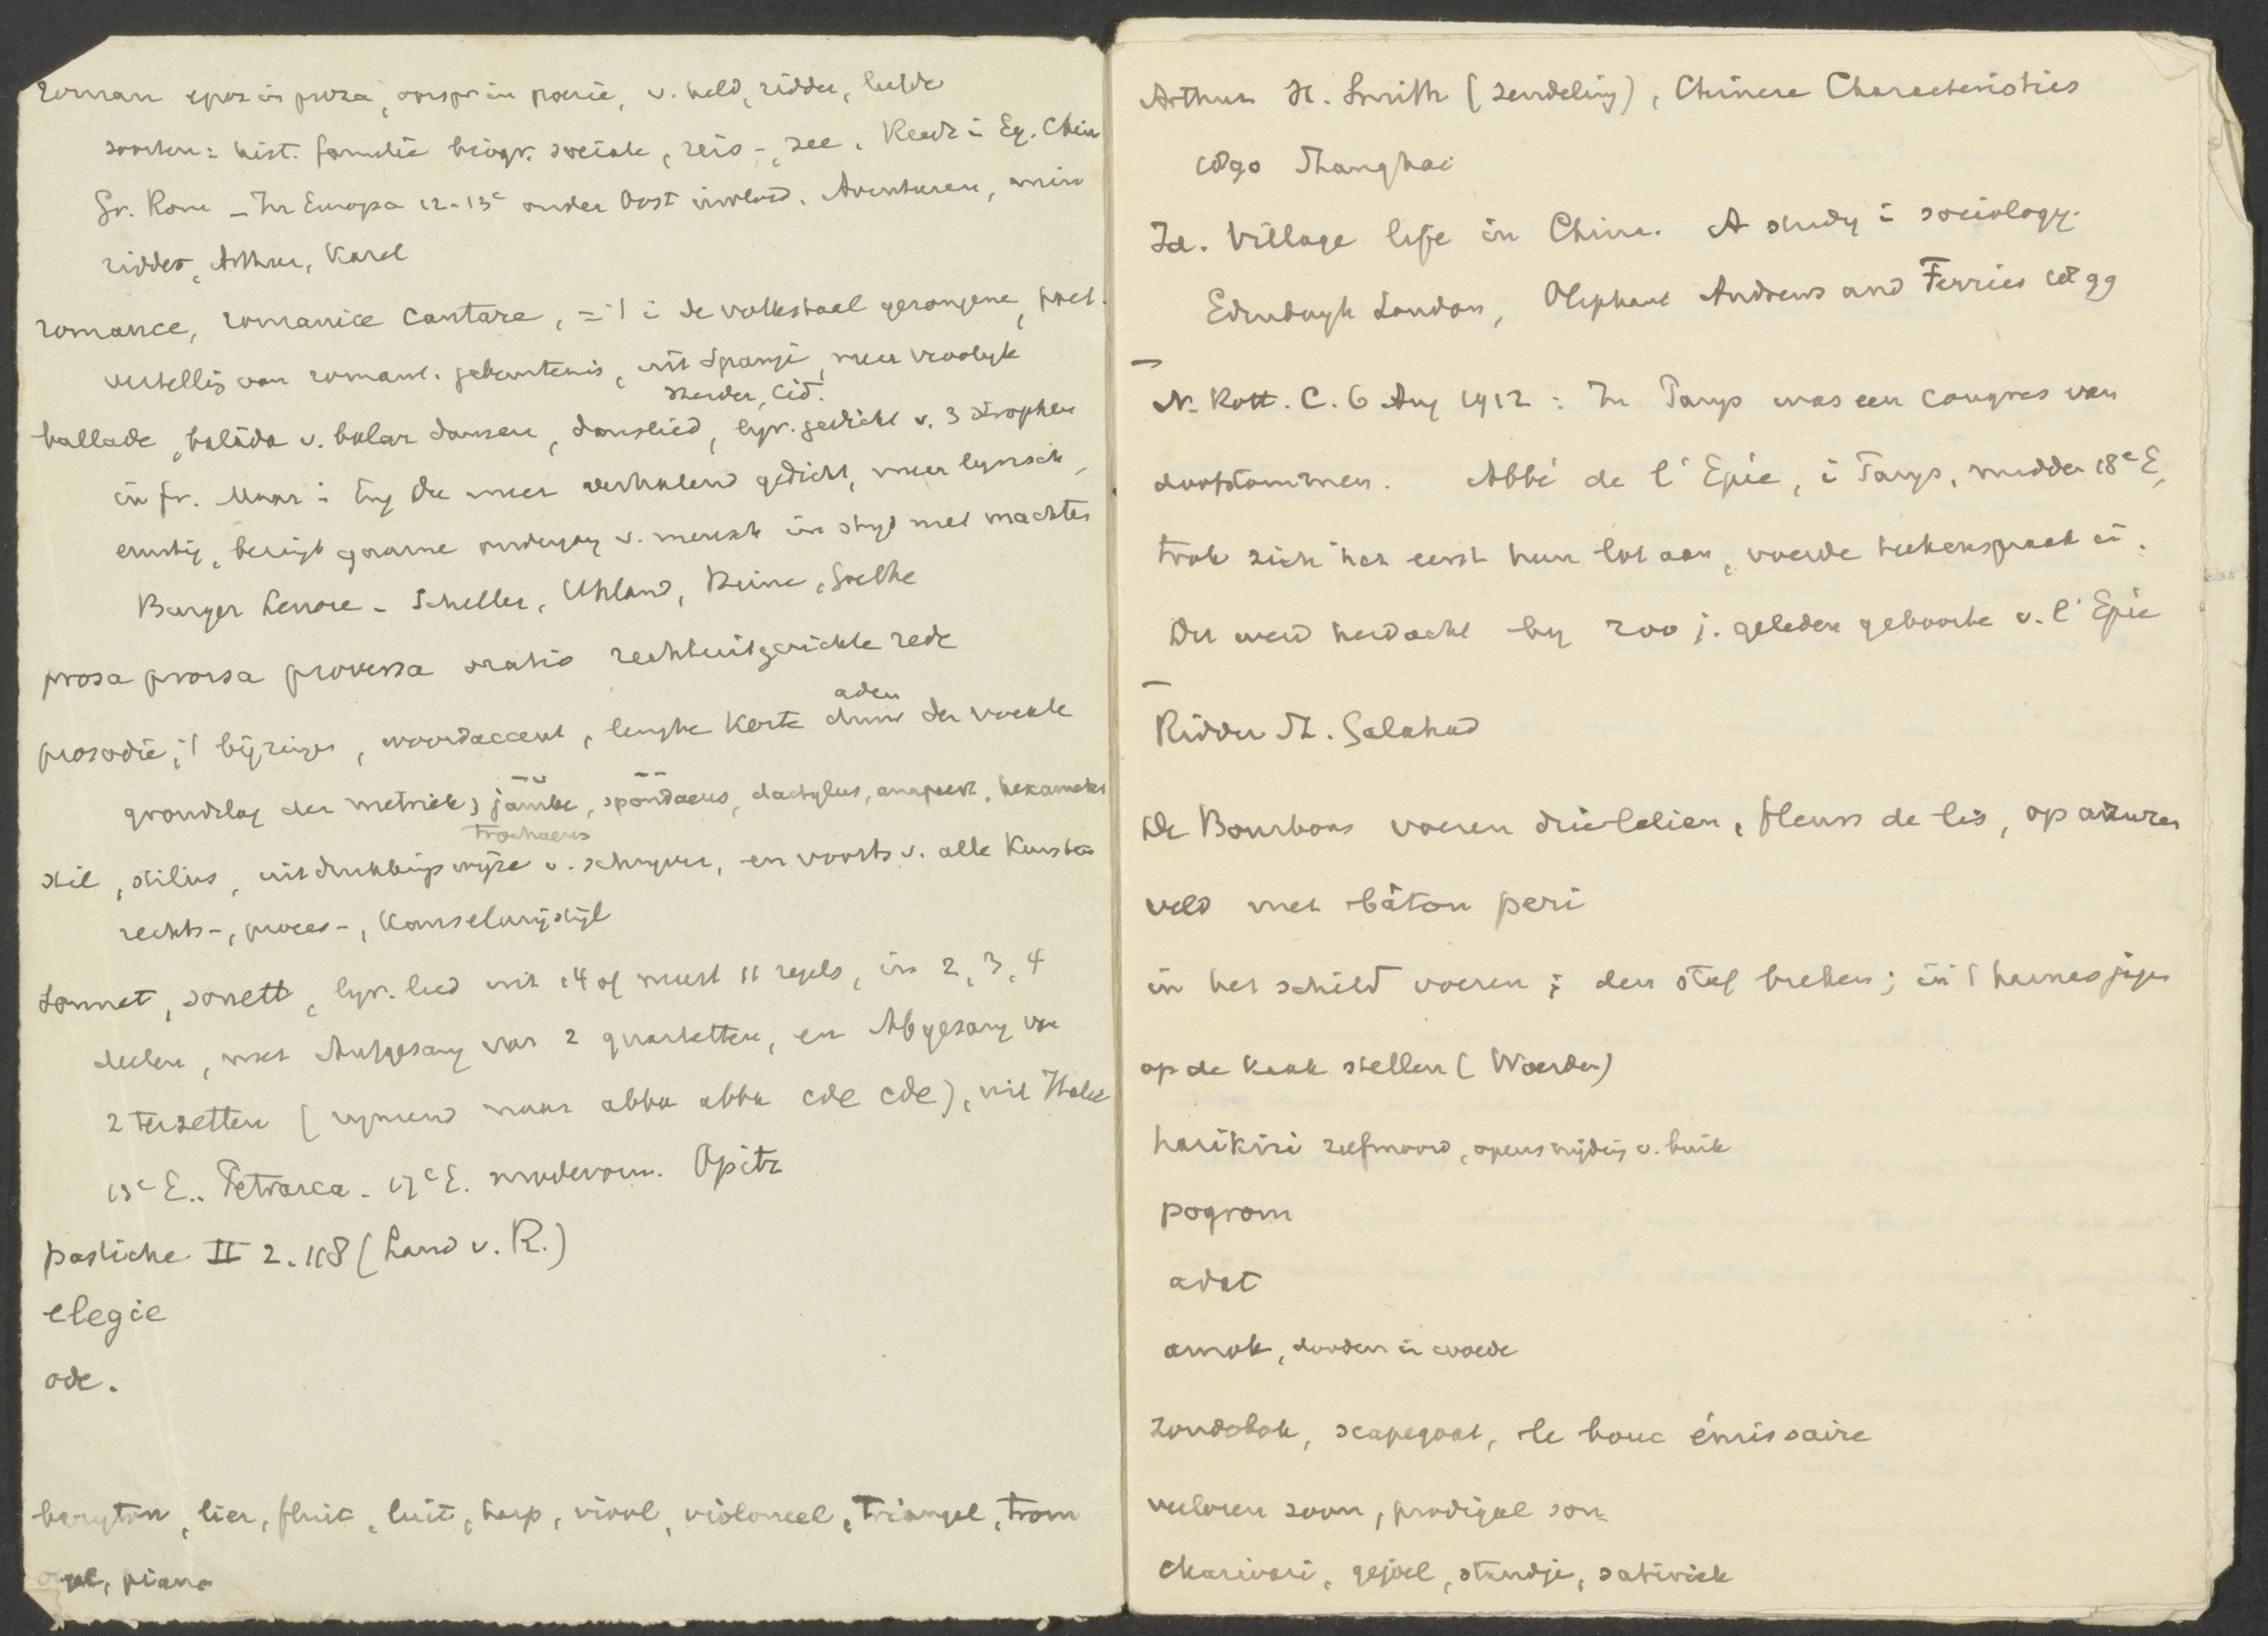 roman epos in proza, oorspr in poezie, v. held, ridder, liefde
soorten: hist. familie biogr. sociale, reis-, zee. Reeds i Eg. Chin
Gr. Rome - In Europa 12-13e onder Oost invloed. Avonturen, min
ridder, Arthur, Karel
romance, romanice cantare, = 't i de volkstaal gezongene, poet.
vertelling van romant. gebeurtenis, uit Spanje, meer vroolyk
Herder, Cid.
ballade, balāda v. balar dansen, danslied, lyr. gedicht v. 3 strophen
in fr. Maar i Eng Du meer verhalend gedicht, meer lyrisch,
ernstig, bezingt gaarne ondergang v. mensch in stryd met machten
Burger Lenore - Schiller, Uhland, Heine, Goethe
prosa prorsa proversa oratio rechtuitgerichte rede
prosodie, 't bijzingen, woordaccent, lengte korte duur der vocale
aden
grondslag der metriek; jambe, spondaeus, dactylus, anapaest, hexameter
trochaeus
stil, stilus, uitdrukkingswyze v. schryver, en voorts v. alle kunsten
rechts-, proces-, Kanselarijstijl
Sonnet, sonett, lyr. lied uit 14 of meest 11 regels, in 2, 3, 4
deelen, met Aufgesang van 2 quartetten, en Abgesang van
2 terzetten (rymend naar abba abba cde cde), uit Italie
13e E.. Petrarca - 17e E. Opitz
pastiche II 2. 118 (Land v. R.)
elegie
ode.
baryton, lier, fluit, luit, harp, viool, violoncel, triangel, trom
orgel, piano
Arthur H. Smith (zendeling), Chinese Characteristics
1890 Shanghai
Id. Village life in China. A study i sociology.
Edinburgh London, Oliphant Andrews and Ferries 1899
N. Rott. C. 6 Aug 1912: In Parys was een congres van
doofstommen. Abbé de l'Epée, i Parys, midden 18e E,
trok zich het eerst hun lot aan, voerde teekenspraak i.
Er werd herdacht by 200 j. geleden geboorte v. l'Epée
Ridder St. Galahad
De Bourbons voeren drie lelien, fleurs de lis, op azuren
veld met bâton peri
in het schild voeren; den staf breken; in 't harnas jagen
op de kaak stellen (Woerden)
harikiri zelfmoord, opensnijding v. buik
pogrom
adat
amok, dooden in woede
zondebok, scapegoat, le bouc émissaire
verloren zoon, prodigal son
charivari, gejoel, standje, satiriek